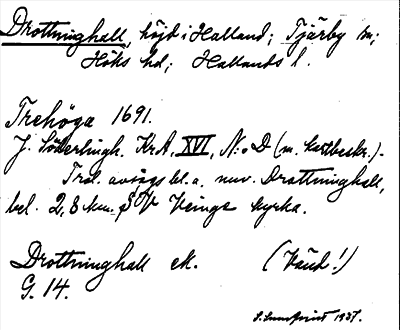 Drottninghall, höjd i Halland; Tjärby sn;
Höks hd; Hallands l.
Trehöga 1691.
J. Söderlingh. Kr.A. XVI, N:o D (m. kartbeskr.).
Trol. avsågs bl.a. nuv. Drottninghall,
bel. 2,8 km. SV Veinge kyrka.
Drottninghall ek. (Vänd!)
G. 14.
1937.